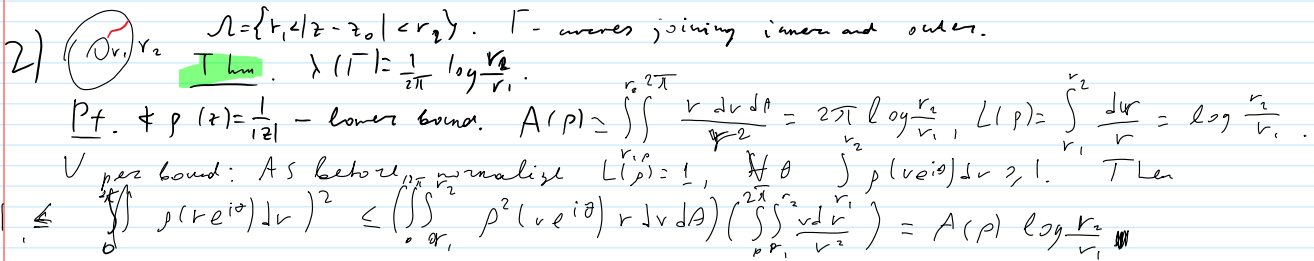 2) r₁ r₂ Ω={r₁<|z-z₀|<r₂}. Γ- curves joining inner and outer.
Thm. λ(Γ)=\frac{1}{2π} log \frac{r₂}{r₁}.
Pf. ρ(z)=\frac{1}{|z|} - lower bound. A(ρ)=∫_{r₁}^{r₂}∫_{0}^{2π} \frac{r dr dθ}{r²} = 2π log \frac{r₂}{r₁}, L(ρ)=∫_{r₁}^{r₂} \frac{dr}{r} = log \frac{r₂}{r₁}.
Upper bound: As before, normalize L(ρ)=1, ∀ θ ∫_{r₁}^{r₂} ρ(re^{iθ})dr ≥ 1. Then
1 ≤ ∫_{0}^{2π}∫ ρ(re^{iθ})dr)² ≤ (∫_{0}^{2π}∫_{r₁}^{r₂} ρ²(re^{iθ}) r dr dθ)(∫_{0}^{2π}∫_{r₁}^{r₂} \frac{rdr}{r²}) = A(ρ) log \frac{r₂}{r₁}